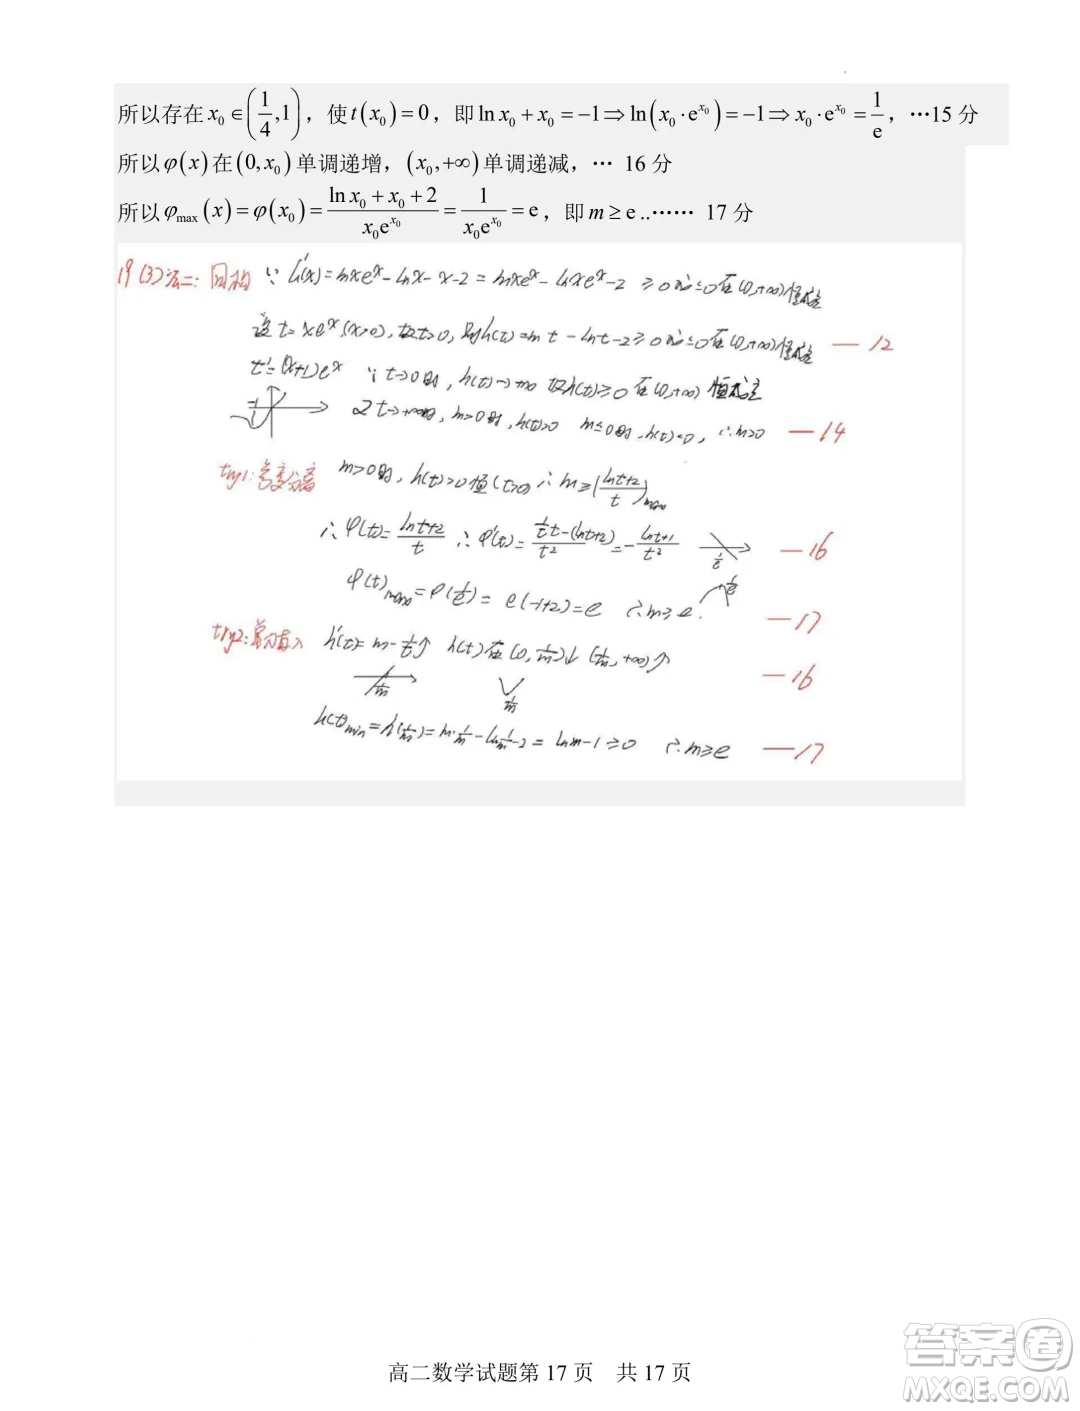 所以存在 x₀ ∈ (1/4, 1)，使 t(x₀) = 0，即 ln x₀ + x₀ = −1 ⇒ ln(x₀ · e^{x₀}) = −1 ⇒ x₀ · e^{x₀} = 1/e，…15 分
所以 φ(x) 在 (0, x₀) 单调递增，(x₀, +∞) 单调递减，… 16 分
所以 φmax(x) = φ(x₀) = (ln x₀ + x₀ + 2)/(x₀e^{x₀}) = 1/(x₀e^{x₀}) = e，即 m ≥ e ..…… 17 分
19 (3) 法二: 同构 ∵ h'(x) = mxe^x − lnx − x − 2 = mxe^x − lnxe^x − 2 ≥ 0 在(0,+∞)恒成立
设 t = xe^x (x>0), 故t>0, 则h(t) = mt − lnt − 2 ≥ 0 在(0,+∞)恒成立 — 12
t' = (x+1)e^x ∵ t→0时, h(t)→+∞ 故h(t)≥0在(0,+∞)恒成立
-1
又t→+∞时, m>0时, h(t)>0 m≤0时, h(t)<0, ∴m>0 — 14
try1: 参变分离 m>0时, h(t)≥0恒(t>0) ∴ m ≥ ((lnt+2)/t)max
∴ φ(t) = (lnt+2)/t ∴ φ'(t) = (1/t·t − (lnt+2))/t² = −(lnt+1)/t² 1/e — 16
φ(t)max = φ(1/e) = e(−1+2) = e ∴ m ≥ e. 1/e — 17
try2: h'(t) = m − 1/t ↑ h(t)在(0, 1/m)↓ (1/m, +∞)↑ — 16
1/m 1/m
h(t)min = h(1/m) = m·1/m − ln1/m − 2 = lnm − 1 ≥ 0 ∴ m ≥ e — 17
答案圈
MXQE.COM
高二数学试题第 17 页 共 17 页